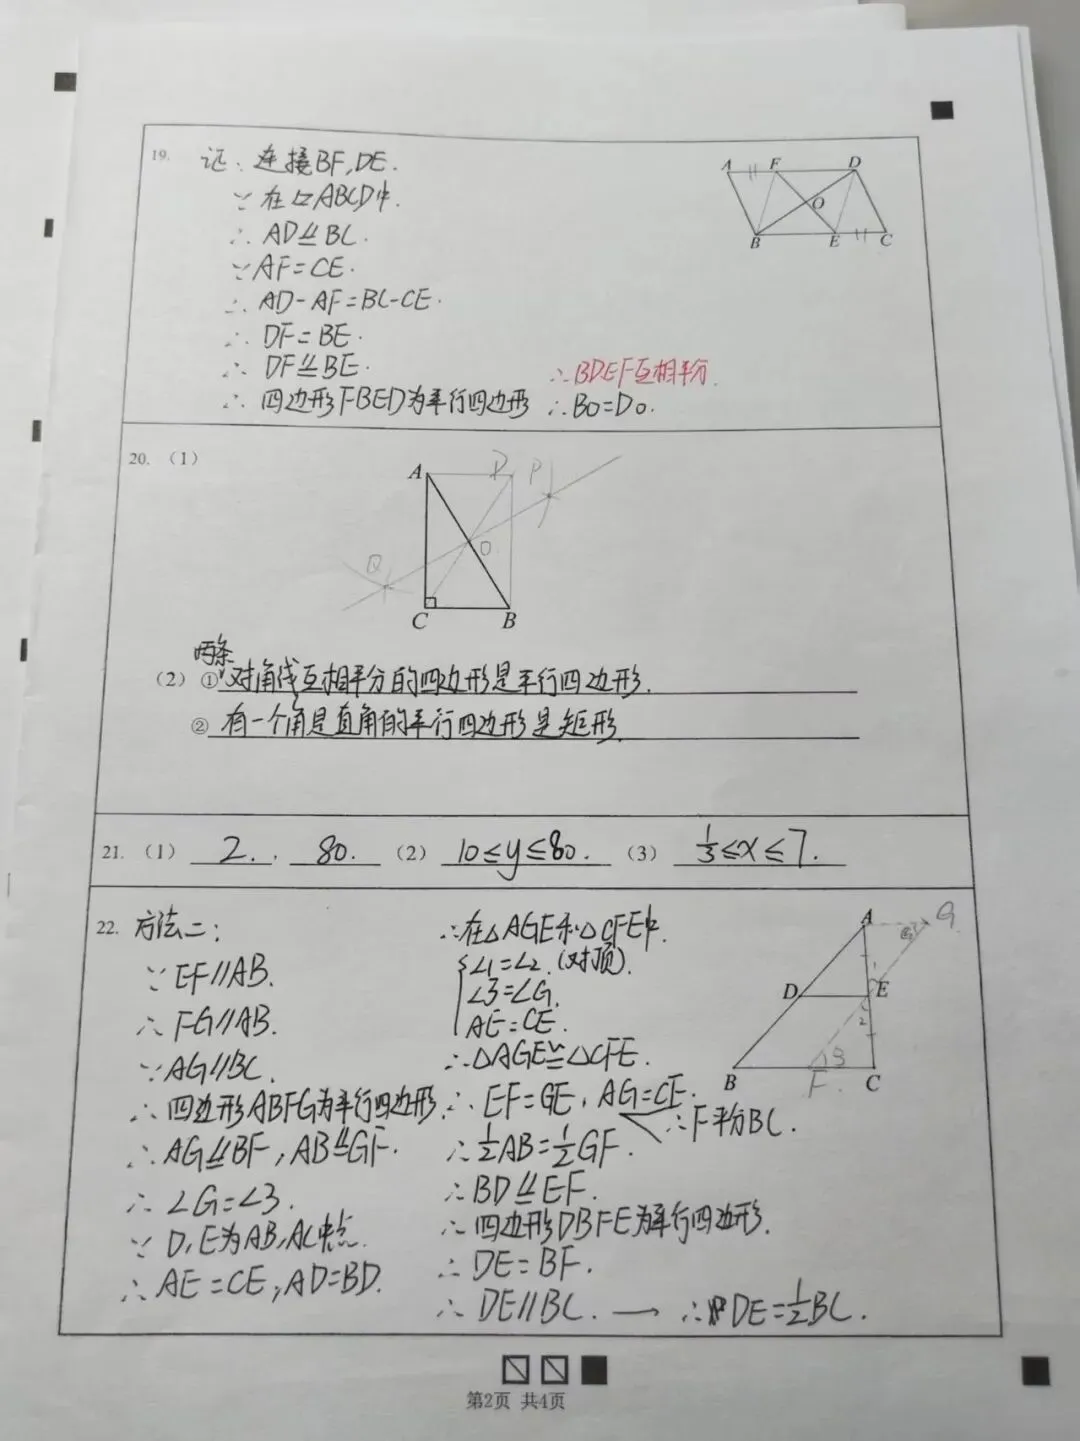 19. 证:连接BF,DE.
∵在▱ABCD中.
∴AD⫽BC.
∵AF=CE.
∴AD-AF=BC-CE.
∴DF=BE.
∴DF⫽BE.
∴四边形FBED为平行四边形
∴BDEF互相平分.
∴BO=DO.
A F D
O
B E C
20.（1）
A D P
Q O
C B
两条
（2）①对角线互相平分的四边形是平行四边形.
②有一个角是直角的平行四边形是矩形.
21.（1）2. 80.（2）10≤y≤80.（3）1/3≤x≤7.
22. 方法二:
∵EF//AB.
∴FG//AB.
∵AG//BC.
∴四边形ABFG为平行四边形.
∴AG⫽BF,AB⫽GF.
∴∠G=∠3.
∵D,E为AB,AC中点.
∴AE=CE,AD=BD.
∴在△AGE和△CFE中.
∠1=∠2.(对顶).
∠3=∠G.
AE=CE.
∴△AGE≌△CFE.
∴EF=GE,AG=CF.
∴F平分BC.
∴1/2AB=1/2GF.
∴BD⫽EF.
∴四边形DBFE为平行四边形.
∴DE=BF.
∴DE//BC. → ∴DE=1/2BC.
A G
1
D E
2
3
B F C
第2页 共4页